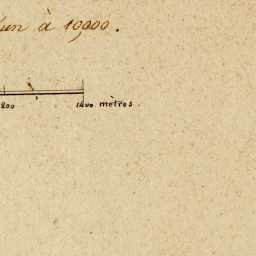 un à 10,000.
200 1400 mètres.